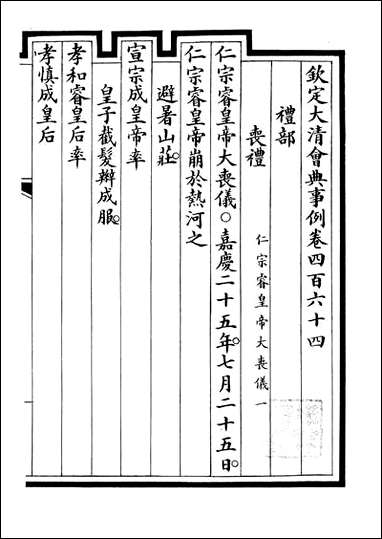 欽定大清會典事例卷四百六十四
禮部
喪禮 仁宗睿皇帝大喪儀一
仁宗睿皇帝大喪儀○嘉慶二十五年。七月二十五日。
仁宗睿皇帝崩於熱河之
避暑山莊。
宣宗成皇帝率
皇子截髮辮成服。
孝和睿皇后率
孝慎成皇后